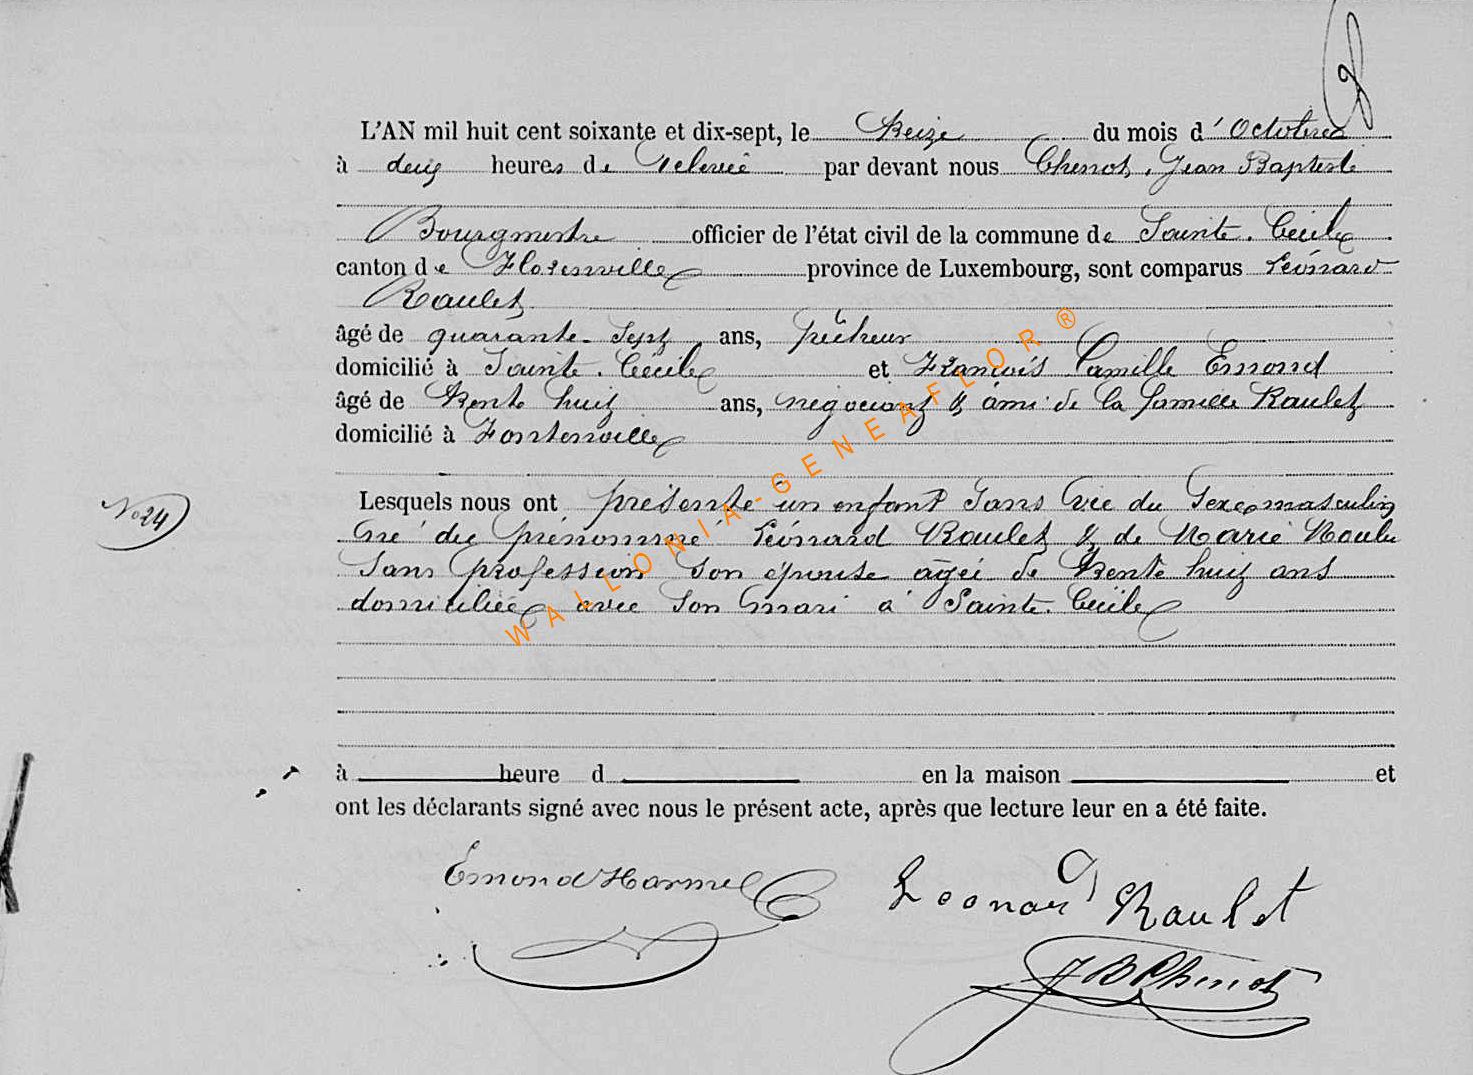 L'AN mil huit cent soixante et dix-sept, le Treize du mois d'Octobre
à deux heures de relevée par devant nous Chenot, Jean Baptiste
Bourgmestre officier de l'état civil de la commune de Sainte-Cécile
canton de Florenville province de Luxembourg, sont comparus Léonard
Raulet
âgé de quarante-sept ans, pêcheur
domicilié à Sainte-Cécile et François Camille Emond
âgé de Trente huit ans, négociant & ami de la famille Raulet
domicilié à Fontenoille
No 24
Lesquels nous ont présenté un enfant sans vie du sexe masculin
né du prénommé Léonard Raulet & de Marie
sans profession son épouse âgée de Trente huit ans
domiciliée avec son mari à Sainte-Cécile
à heure d en la maison et
ont les déclarants signé avec nous le présent acte, après que lecture leur en a été faite.
Emond Harmel
Leonard Raulet
JB Chenot
WALLONIA-GENEAFLOR ®